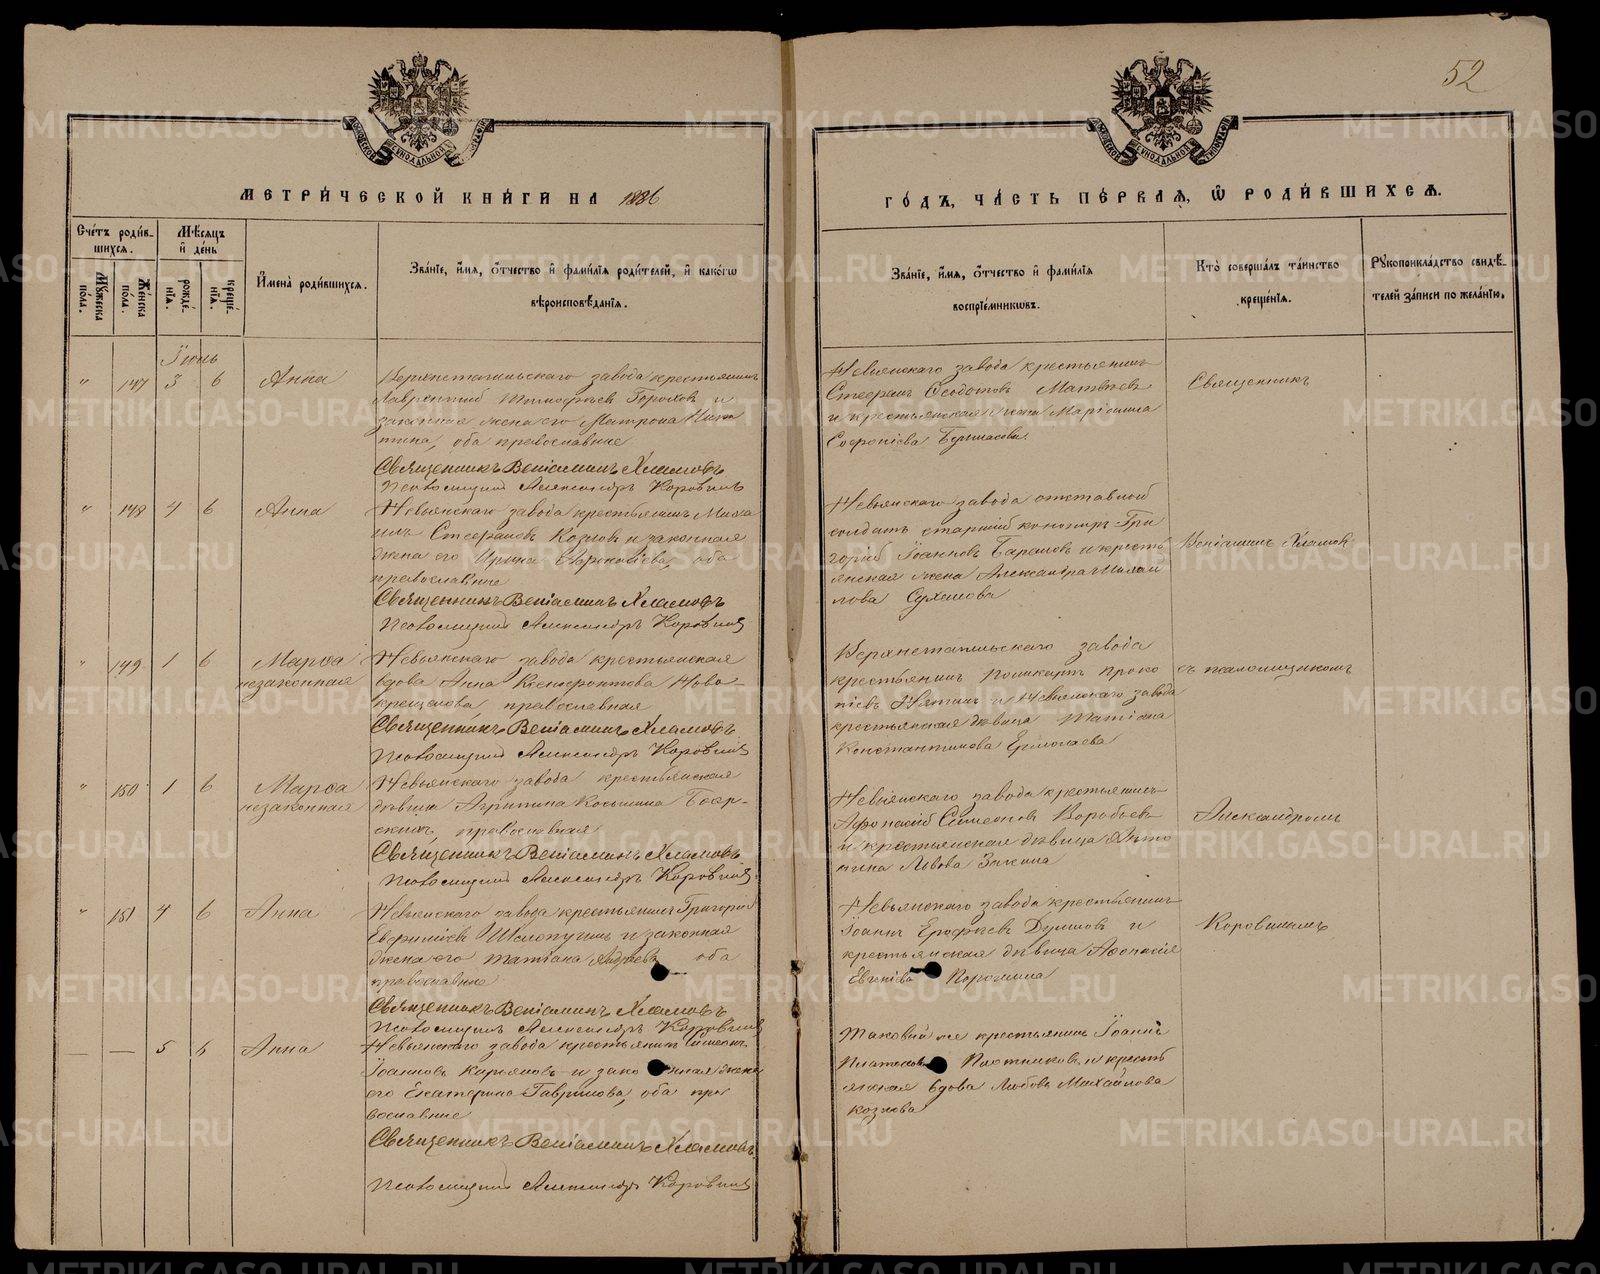 52
МЕТРИ́ЧЕСКОЙ КНИ́ГИ НА 1886
ГО́ДЪ, ЧА́СТЬ ПЕ́РВАѦ, Ѽ РОДИ́ВШИХСѦ.
Сче́тъ роди́в-
шихся.
Мѣ́сяцъ
и҆ де́нь
Мꙋ́жеска по́ла.
Же́нска по́ла.
рожде́-
нїя.
креще́-
нїя.
И҆мена̀ роди́вшихся.
Зва́нїе, и҆́мя, ѻ҆́тчество и҆ фами́лїя роди́телей, и҆ како́гѡ
вѣроисповѣ́данїя.
Зва́нїе, и҆́мя, ѻ҆́тчество и҆ фами́лїя
воспрїе́мникѡвъ.
Кто̀ соверша́лъ та́инство
креще́нїя.
Рꙋкоприкла́дство свидѣ́-
телей за́писи по жела́нїю.
Iюнь
" 147 3 6 Анна
Верхнетагильскаго завода крестьянинъ
Лаврентий Тимофеевъ Гороховъ и
законная жена его Матрона Ники
тина, оба православные
Священникъ Венiаминъ Хламовъ
Псаломщикъ Александръ Коровинъ
Невьянскаго завода крестьянинъ
Стефанъ Феодотовъ Матвеевъ
и крестьянская жена
Софронiева
Священникъ
" 148 4 6 Анна
Невьянскаго завода крестьянинъ Миха
илъ Стефановъ Козловъ и законная
жена его Ирина оба
православные
Священникъ Венiаминъ Хламовъ
Псаломщикъ Александръ Коровинъ
Невьянскаго завода отставной
солдатъ старшiй Гри
горiй Iоанновъ Барановъ и кресть
янская жена Александра Михай
лова Сухапова
Венiаминъ Хламовъ
" 149 1 6 Марѳа
незаконная
Невьянскаго завода крестьянская
вдова Анна Ксенофонтова Ново-
крещенова православная
Священникъ Венiаминъ Хламовъ
Псаломщикъ Александръ Коровинъ
Верхнетагильскаго завода
крестьянинъ Поликарпъ Проко
пiевъ и Невьянскаго завода
крестьянская дѣвица Татiана
Константинова Ермолаева
съ псаломщикомъ
" 150 1 6 Марѳа
незаконная
Невьянскаго завода крестьянская
дѣвица Агрипина Косьмина Бояр-
скихъ, православная
Священникъ Венiаминъ Хламовъ
Псаломщикъ Александръ Коровинъ
Невьянскаго завода крестьянинъ
Афонасiй Симеоновъ Воробьевъ
и крестьянская дѣвица Анто
нина Львова Заякина
Александромъ
" 151 4 6 Анна
Невьянскаго завода крестьянинъ Григорий
Евфимiевъ Шелопугинъ и законная
жена его Татiана оба
православные
Священникъ Венiаминъ Хламовъ
Псаломщикъ Александръ Коровинъ
Невьянскаго завода крестьянинъ
Iоаннъ Ерофеевъ Душновъ и
крестьянская дѣвица Афонасiя
Евгенiева
Коровинымъ
— — 5 6 Анна
Невьянскаго завода крестьянинъ Симеонъ
Iоанновъ и законная жена
его Екатерина Гаврилова, оба пра
вославные
Священникъ Венiаминъ Хламовъ
Псаломщикъ Александръ Коровинъ
Таковой же крестьянинъ Iоаннъ
Платоновъ Плотниковъ и кресть
янская вдова Любовь Михайлова
Козлова
METRIKI.GASO-URAL.RU